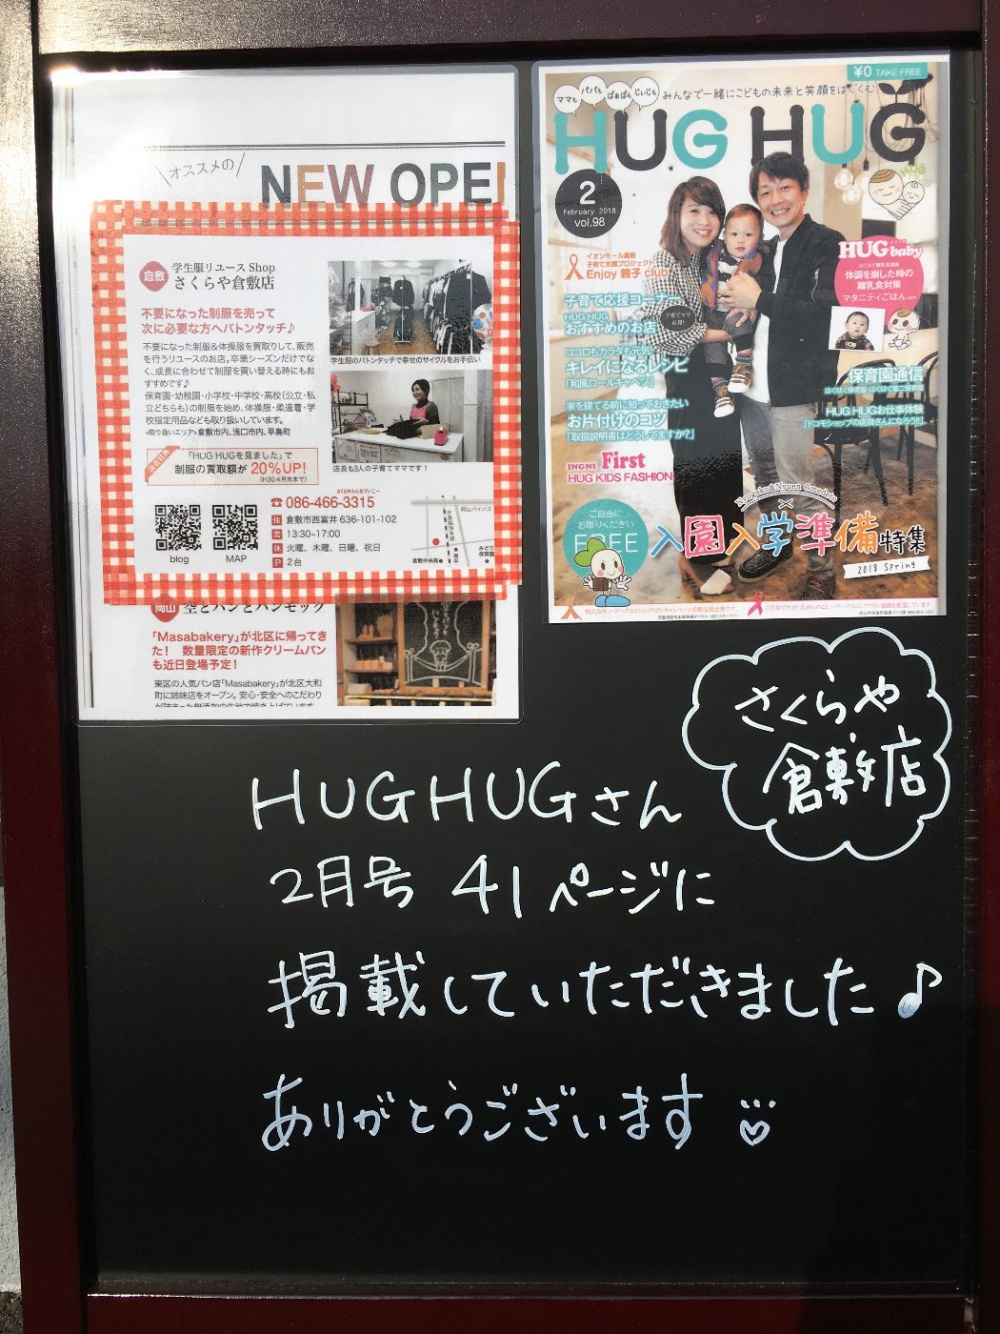 オススメの
NEW OPE
倉敷
学生服リユース Shop
さくらや倉敷店
不要になった制服を売って
次に必要な方へバトンタッチ♪
不要になった制服&体操服を買取りして、販売
を行うリユースのお店。卒業シーズンだけでな
く、成長に合わせて制服を買い替える時にもお
すすめです♪
保育園・幼稚園・小学校・中学校・高校(公立・私
立どちらも)の制服を始め、体操服・柔道着・学
校指定用品なども取り扱いしています。
<取り扱いエリア>倉敷市内、浅口市内、早島町
「HUG HUGを見ました」で
制服の買取額が 20%UP!
(H30.4月末まで)
学生服のバトンタッチで幸せのサイクルをお手伝い
店長も3人の子育てママです!
☎ 086-466-3315
住 倉敷市西富井 636-101-102
営 13:30~17:00
休 火曜、木曜、日曜、祝日
P 2台
blog
MAP
岡山バイパス
倉敷中央病
岡山
空とパンとパンセック
「Masabakery」が北区に帰ってき
た! 数量限定の新作クリームパン
も近日登場予定!
東区の人気パン店「Masabakery」が北区大和
町に姉妹店をオープン。安心・安全へのこだわり
¥0 TAKE FREE
ママも パパも ばぁばも じぃじも
みんなで一緒にこどもの未来と笑顔をはぐくむ
HUG HUG
2
February 2018
vol.98
イオンモール倉敷
子育て支援プロジェクト
Enjoy 親子 club
子育て応援コーナー
HUG HUG
おすすめのお店
子育てママ
必見!
ココロもカラダも元気!
キレイになるレシピ
「和風ロールキャベツ」
家を建てる前に知っておきたい
お片付けのコツ
「取扱説明書はどうしてますか?」
INGNI First
HUG KIDS FASHION
HUG baby
はぐはぐ離乳食講座
体調を崩した時の
離乳食対策
マタニティごはん
保育園通信
HUG HUGお仕事体験
「ドコモショップの店員さんになろう!!」
ご自由に
お取りください
FREE
入園入学準備特集
2018 Spring
さくらや
倉敷店
HUGHUGさん
2月号 41ページに
掲載していただきました♪
ありがとうございます